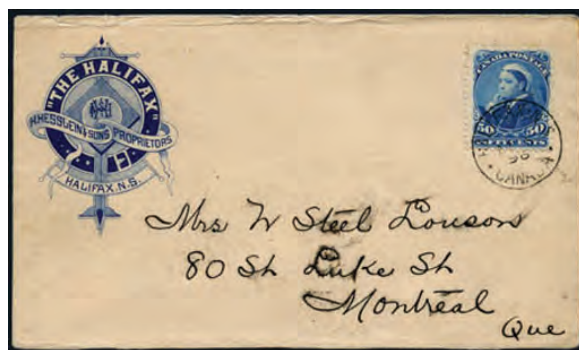 "THE HALIFAX"
H. HESSLEIN & SONS PROPRIETORS
HALIFAX. N.S.
CANADA POSTAGE
50 50
FIFTY CENTS
96
CANADA
Mrs W Steel Louson
80 St Luke St
Montréal
Que